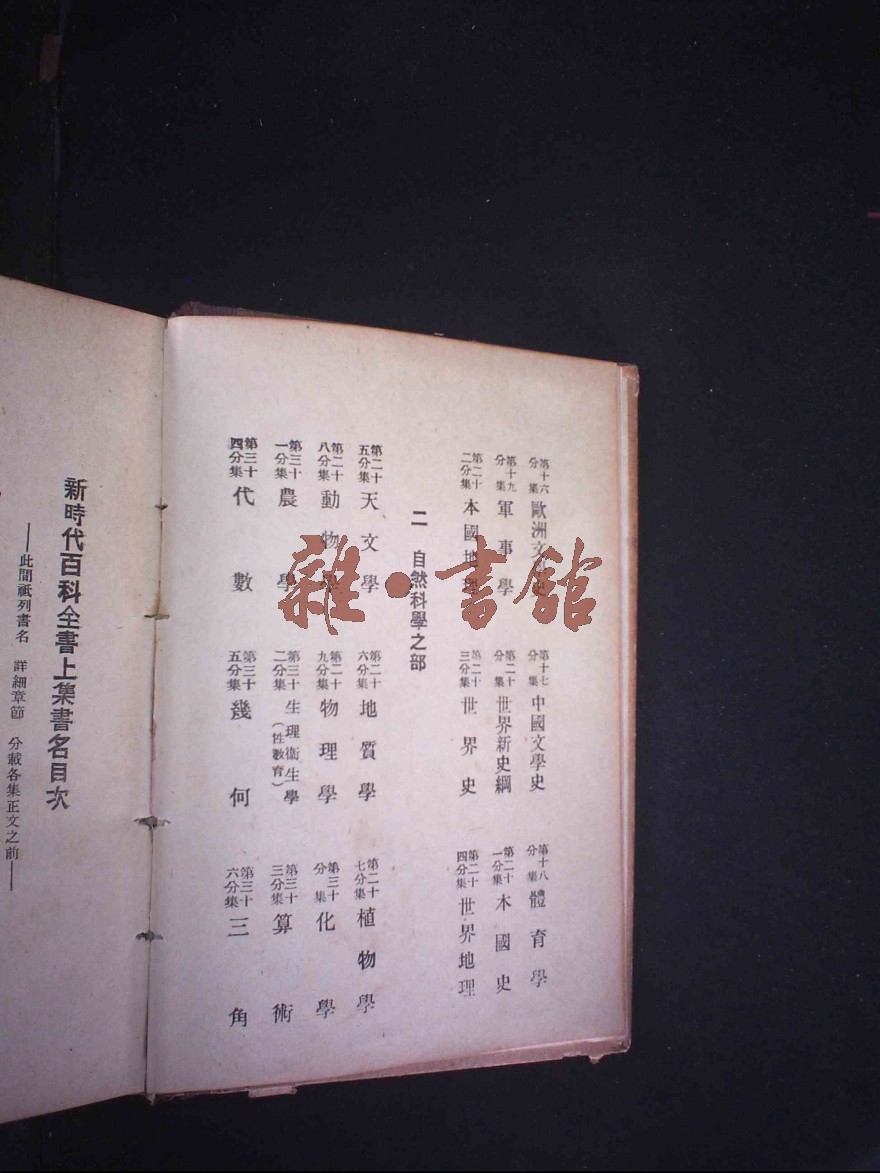 第十六分集 歐洲文學史
第十七分集 中國文學史
第十八分集 體育學
第十九分集 軍事學
第二十分集 世界新史綱
第二十一分集 本國史
第二十二分集 本國地理
第二十三分集 世界史
第二十四分集 世界地理
二 自然科學之部
第二十五分集 天文學
第二十六分集 地質學
第二十七分集 植物學
第二十八分集 動物學
第二十九分集 物理學
第三十分集 化學
第三十一分集 農學
第三十二分集 生理衞生學(性敎育)
第三十三分集 算術
第三十四分集 代數
第三十五分集 幾何
第三十六分集 三角
新時代百科全書上集書名目次
——此間祇列書名 詳細章節 分載各集正文之前——
雜·書館